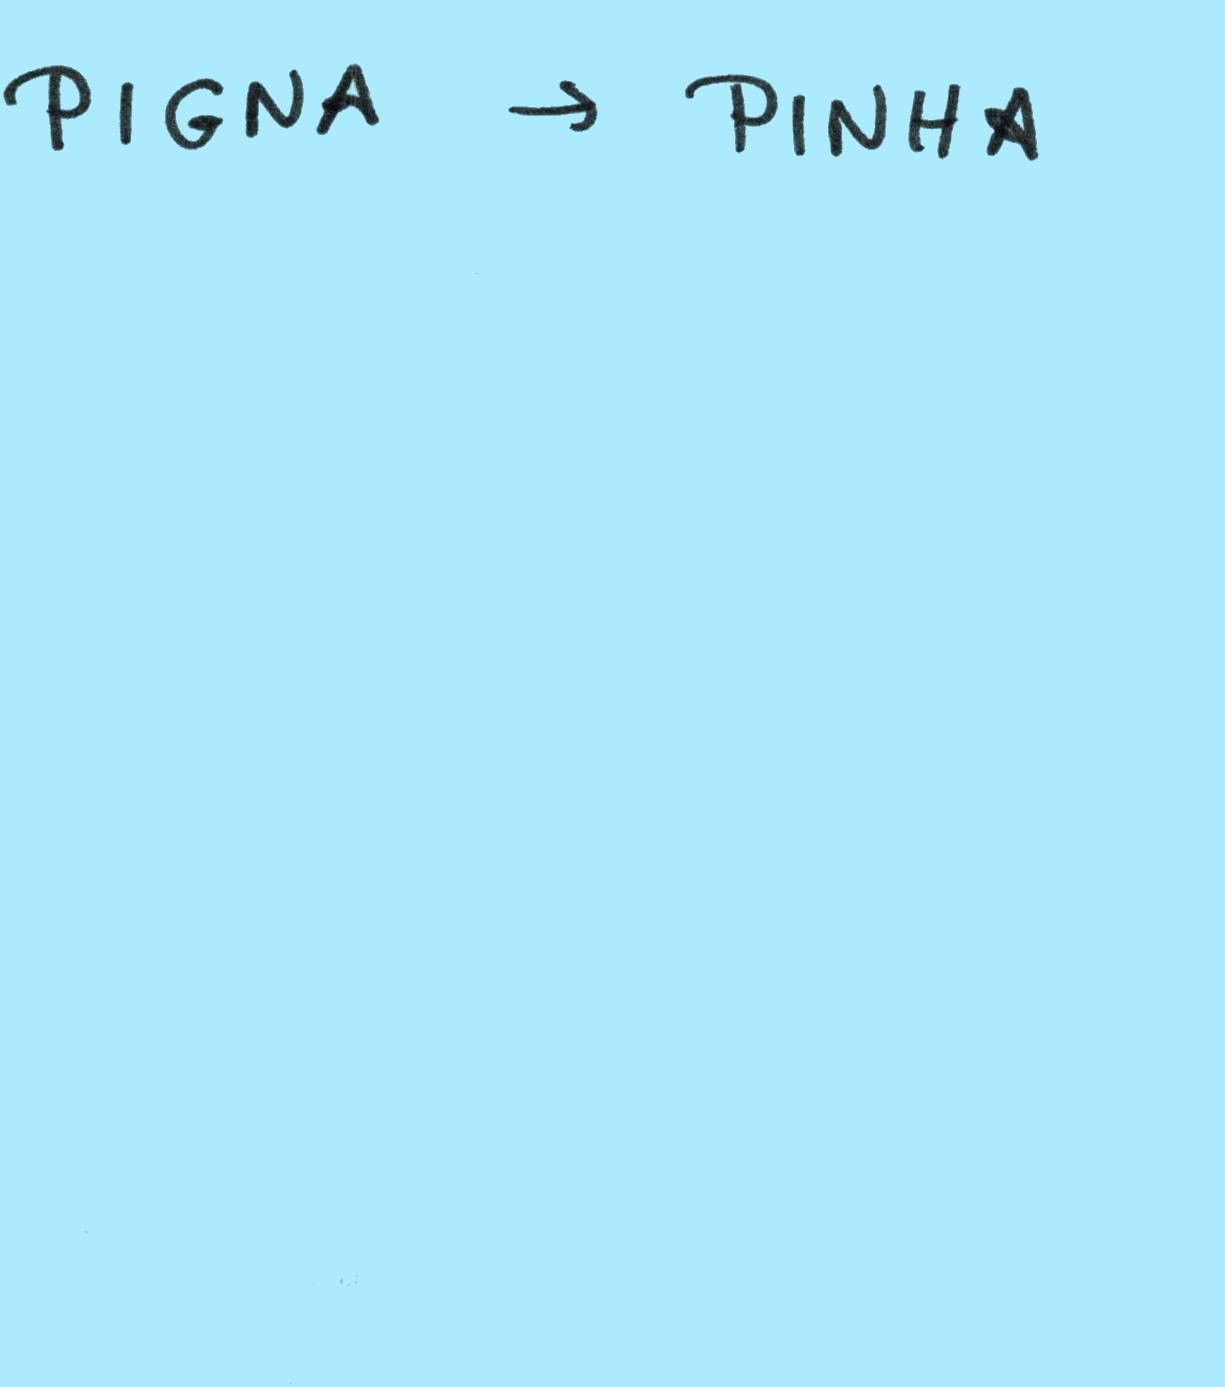 PIGNA → PINHA